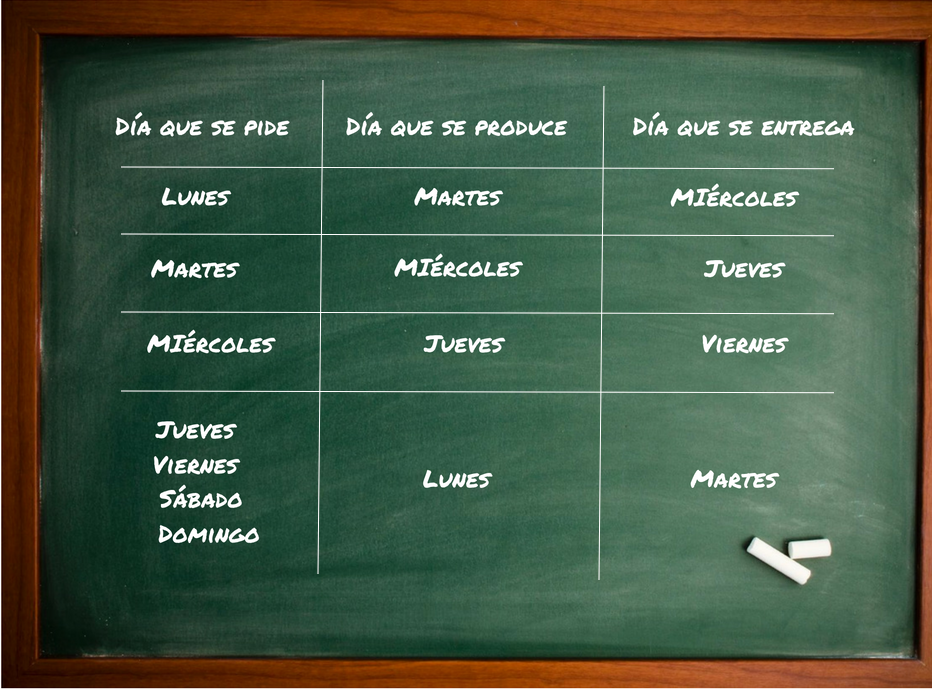 Día que se pide Día que se produce Día que se entrega
Lunes Martes Miércoles
Martes Miércoles Jueves
Miércoles Jueves Viernes
Jueves
Viernes
Lunes Martes
Sábado
Domingo